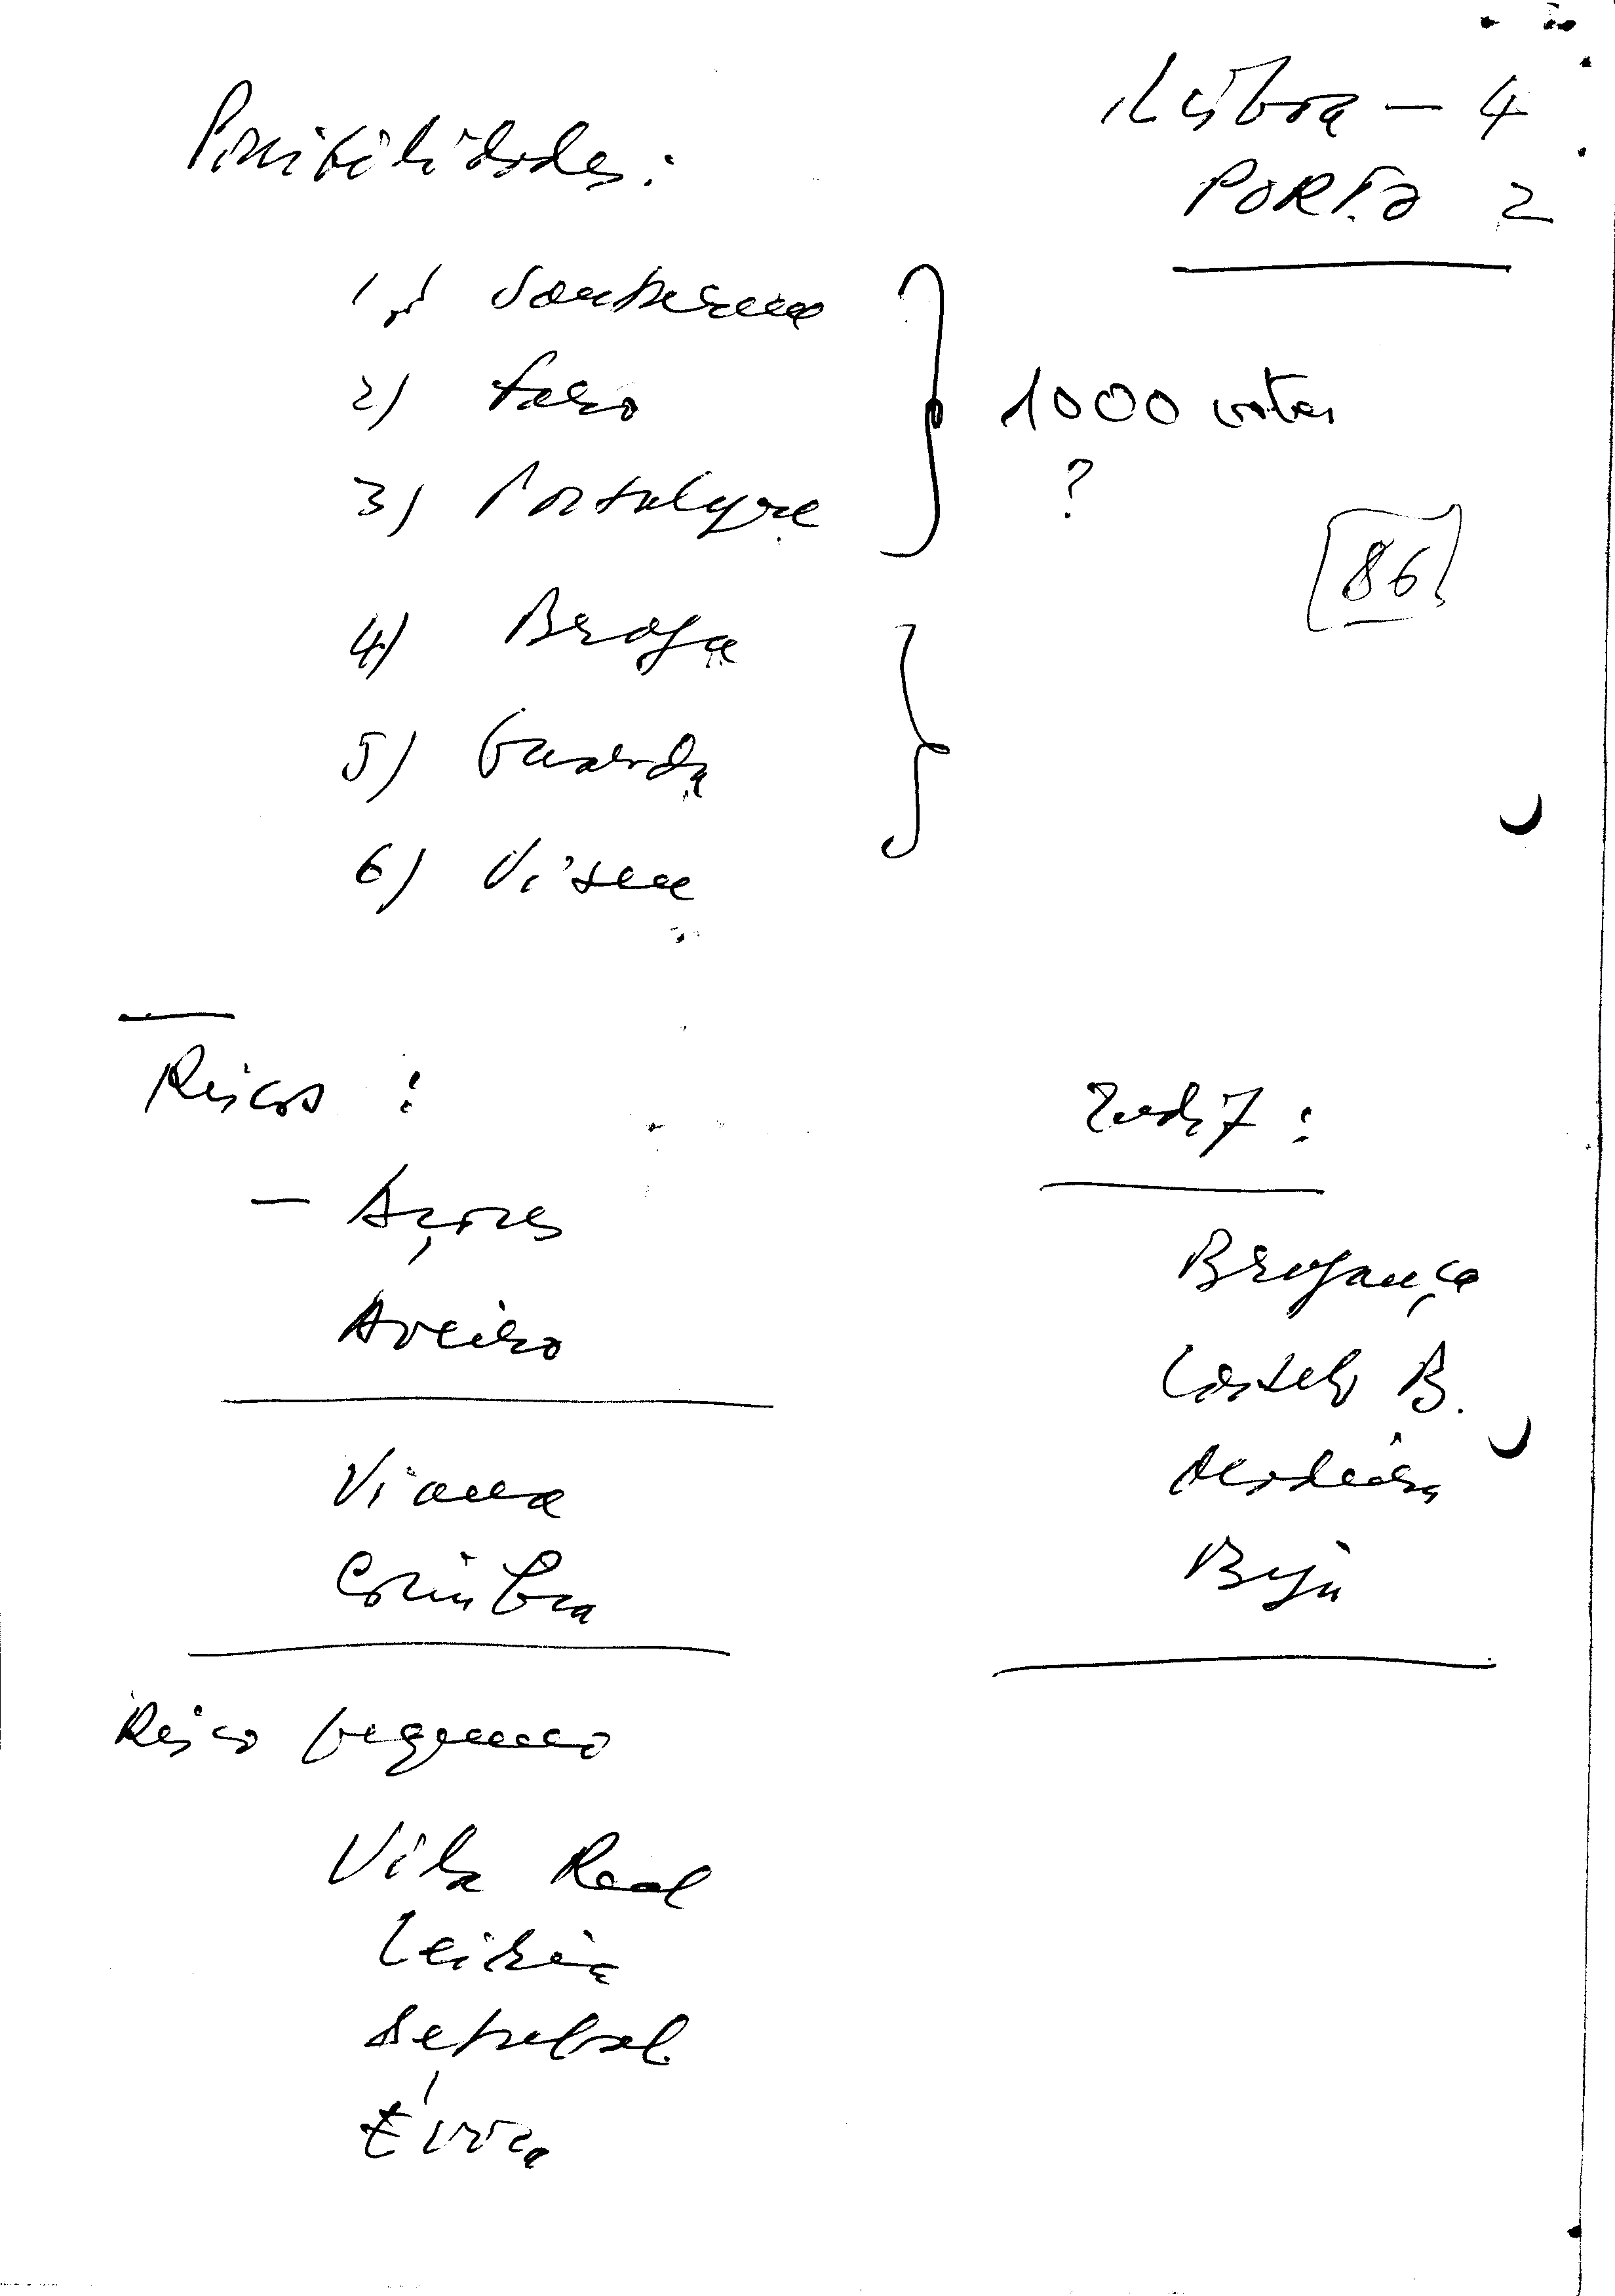 Possibilidades:
Lisboa - 4
PORTO 2
1) Santarém
2) Faro
3) Portalegre
1000 votos
?
86
4) Braga
5) Guarda
6) Viseu
Riscos:
- Açores
Aveiro
Viana
Coimbra
Risco pequeno
Vila Real
Leiria
Setubal
Évora
Bragança
Castelo B.
Madeira
Beja